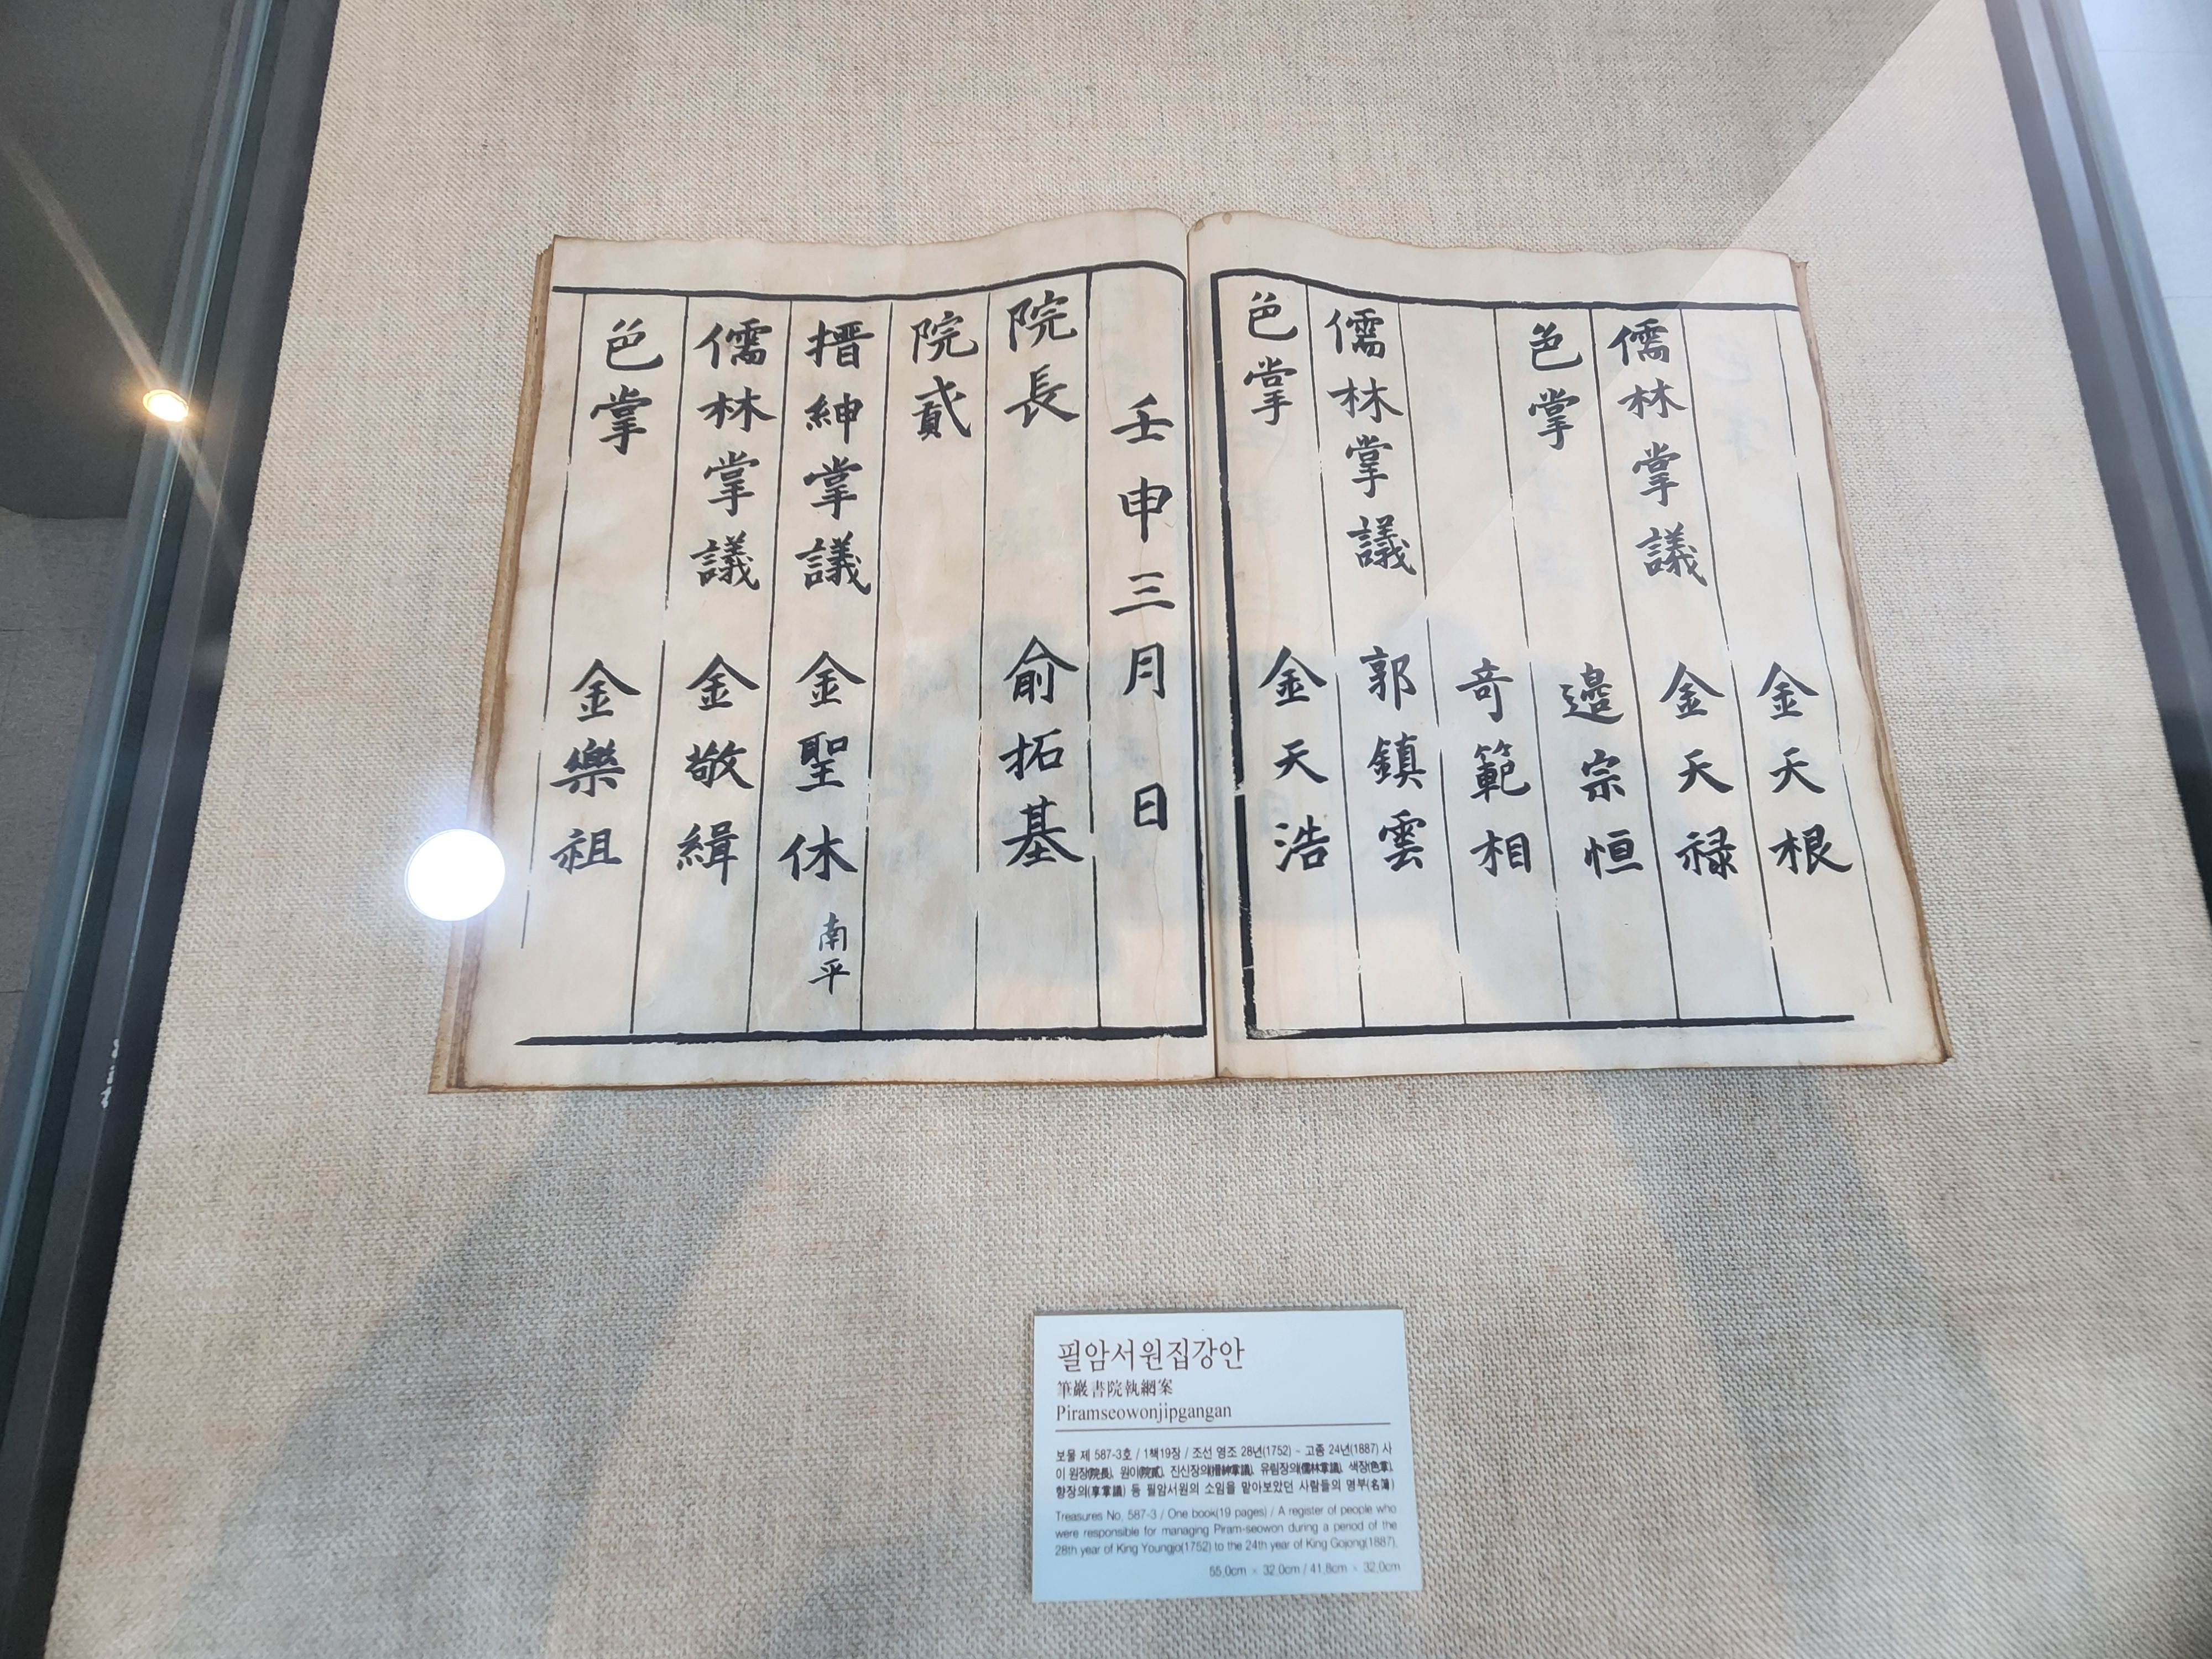 金天根
儒林掌議 金天祿
色掌 邉宗恒
奇範相
儒林掌議 郭鎮雲
色掌 金天浩
壬申三月 日
院長 俞拓基
院貳
搢紳掌議 金聖休 南平
儒林掌議 金敬緝
色掌 金樂祖
필암서원집강안
筆巖書院執綱案
Piramseowonjipgangan
보물 제 587-3호 / 1책19장 / 조선 영조 28년(1752) - 고종 24년(1887) 사
이 원장(院長), 원이(院貳), 진신장의(搢紳掌議), 유림장의(儒林掌議), 색장(色掌),
향장의(享掌議) 등 필암서원의 소임을 맡아보았던 사람들의 명부(名簿)
Treasures No. 587-3 / One book(19 pages) / A register of people who
were responsible for managing Piram-seowon during a period of the
28th year of King Youngjo(1752) to the 24th year of King Gojong(1887).
55.0cm × 32.0cm / 41.8cm × 32.0cm